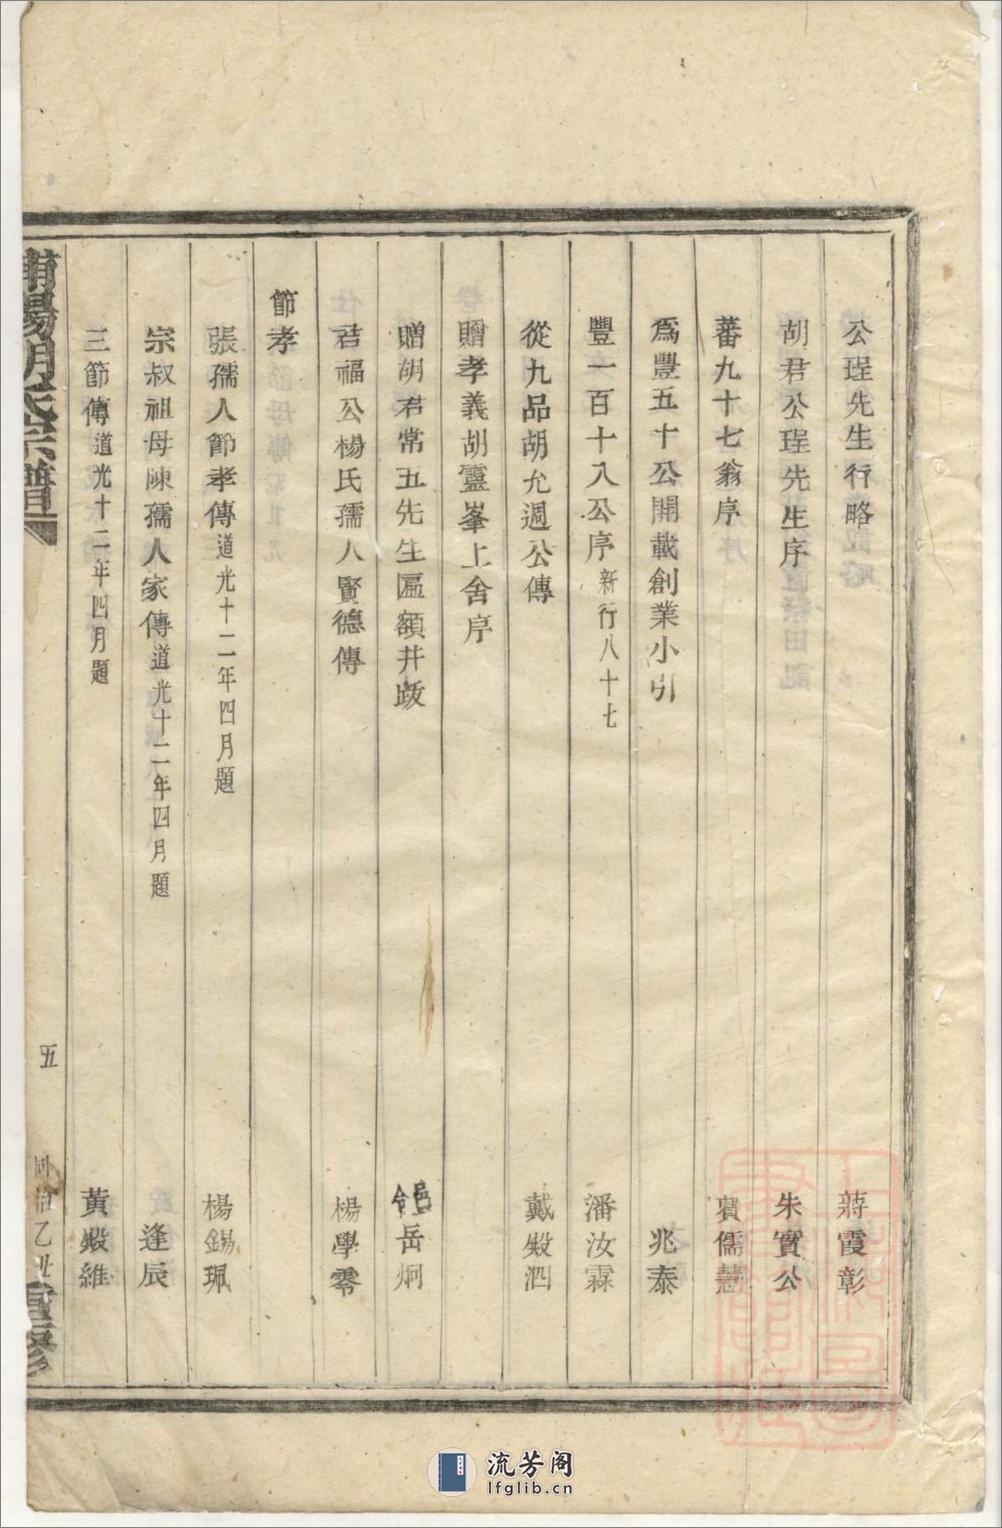 公珵先生行略 蔣霞彰
胡君公珵先生序 朱寶公
蕃九十七翁序 儒慧
為豐五十公開載創業小引 兆泰
豐一百十八公序新行八十七 潘汝霖
從九品胡允週公傳 戴殿泗
贈孝義胡靈峯上舍序
贈胡君常五先生匾額井跋 岳炯
君福公楊氏孺人賢德傳 楊學零
節孝
張孺人節孝傳道光十二年四月題 楊錫珮
宗叔祖母陳孺人家傳道光十二年四月題 逢辰
三節傳道光十二年四月題 黃殿維
浦陽胡氏宗譜 五 同治乙丑重修
流芳阁
lfglib.cn